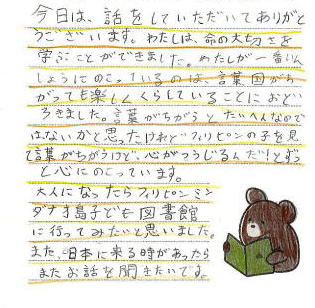 今日は、話をしていただいてありがと
うございます。わたしは、命の大切さを
学ぶことができました。わたしが一番いん
しょうにのこっているのは、言葉国がち
がっても楽しくくらしていることにおど
ろきました。言葉がちがうとたいへんなので
はないかと思ったけれどフィリピンの子を見
て言葉がちがうけど、心がつうじるんだ!とずっ
と心にのこっています。
大人になったらフィリピンミン
ダナオ島子ども図書館
に行ってみたいと思いました。
また、日本に来る時があったら
またお話を聞きたいです。